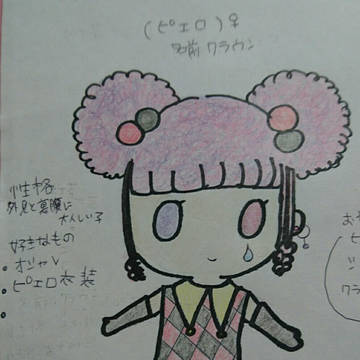 (ピエロ)♀
名前 クラウン
性格
外見と裏腹に
大人しい子
好きなもの
・オシャレ
・ピエロ衣装